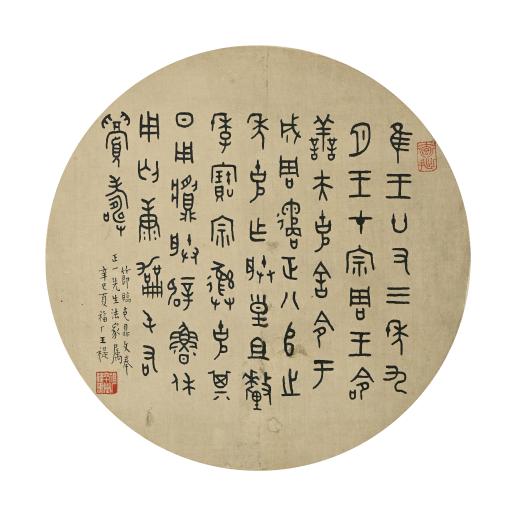 隹王廿又三年九
月王才宗周王命
善夫克舍令于
成周遹正八𠂤之
年克乍朕皇且釐
季寶宗彝克其
日用䵼朕辟魯休
用匄康勱屯右
眉壽
節臨克鼎文奉
正一先生法家屬
辛巳夏福厂王禔